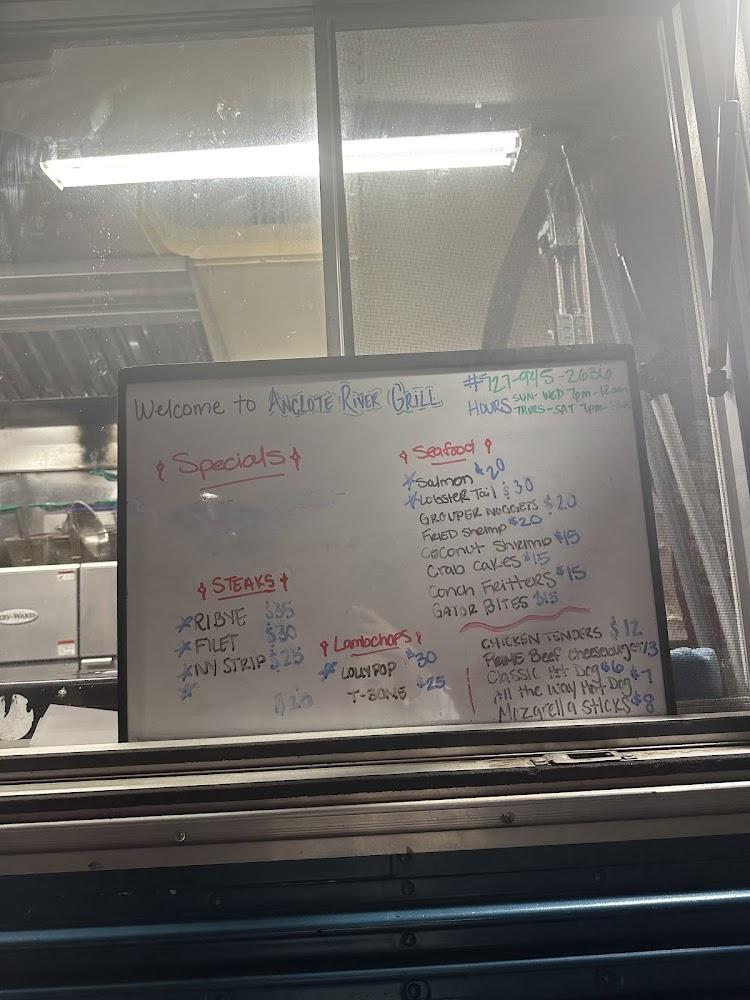 Welcome to ANCLOTE RIVER GRILL
#727-945-2636
HOURS SUN-WED 7pm-12am
THURS-SAT 7pm-
Specials
Seafood
*Salmon $20
*Lobster Tail $30
GROUPER NUGGETS $20
FRIED Shrimp $20
Coconut Shrimp $15
Crab Cakes $15
Conch Fritters $15
GATOR BITES $15
STEAKS
*RIBYE $35
*FILET $30
*NY STRIP $25
* $20
Lambchops
*LOLLYPOP $30
T-BONE $25
CHICKEN TENDERS $12
PRIME Beef Cheeseburger $13
Classic Hot Dog $6
All the way Hot Dog $7
Mozarella Sticks $8